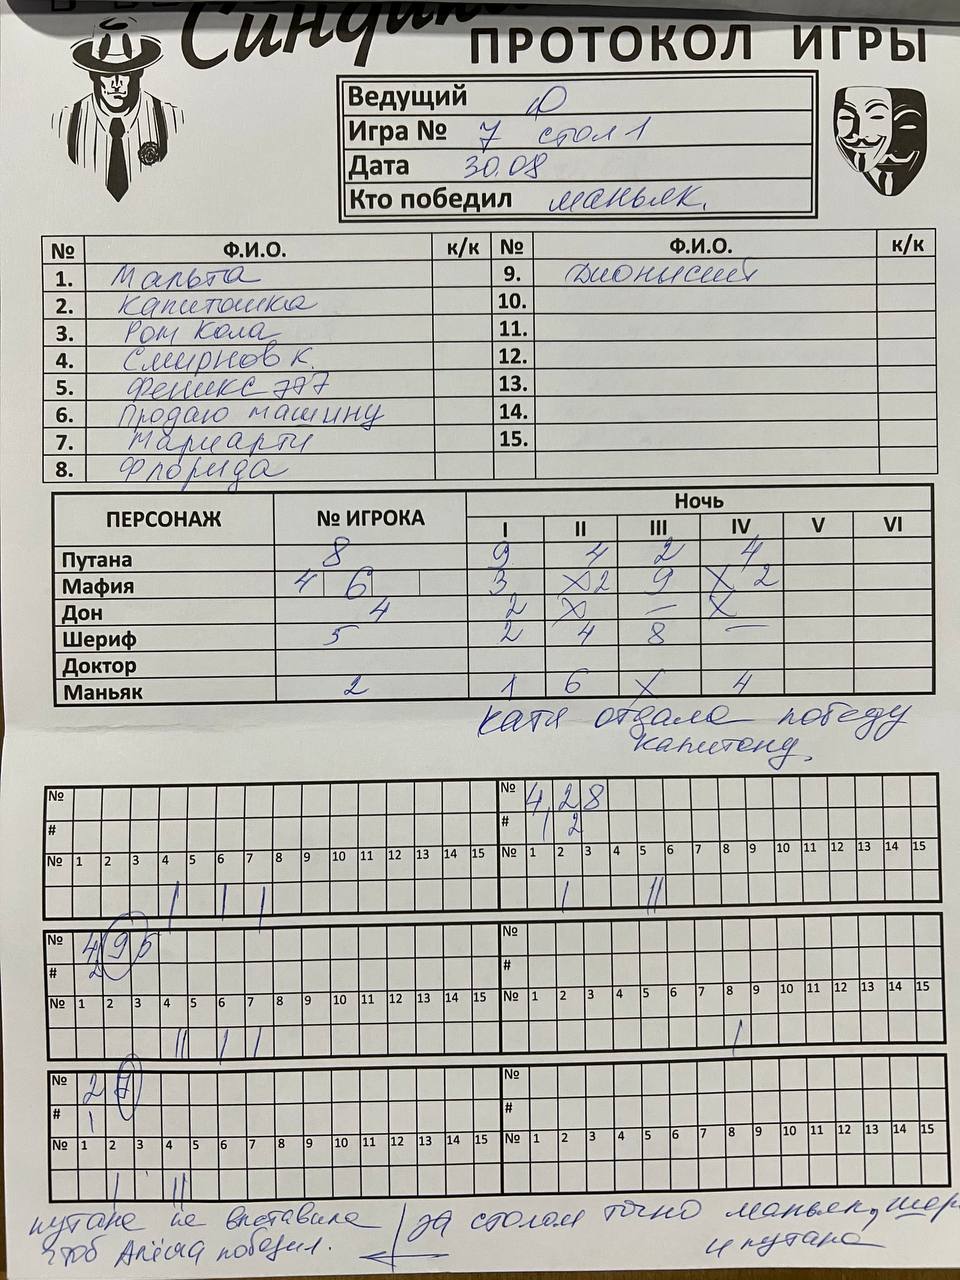 Синдик
ПРОТОКОЛ ИГРЫ
Ведущий Ф
Игра № 7 стол 1
Дата 30.08
Кто победил маньяк.
№ Ф.И.О. к/к № Ф.И.О. к/к
1. Мальта 9. Дионисий
2. Капитошка 10.
3. Ром Кола 11.
4. Смирнов к. 12.
5. Феникс 777 13.
6. Продаю машину 14.
7. Мариарти 15.
8. Флорида
ПЕРСОНАЖ № ИГРОКА Ночь
I II III IV V VI
Путана 8 9 4 2 4
Мафия 4 6 3 X2 9 X 2
Дон 4 2 X — X
Шериф 5 2 4 8 —
Доктор
Маньяк 2 1 6 X 4
Катя отдала победу
капитону.
№ № 4, 2 8
# # 1 2
№ 1 2 3 4 5 6 7 8 9 10 11 12 13 14 15 № 1 2 3 4 5 6 7 8 9 10 11 12 13 14 15
| | | | ||
№ 4 9 5 №
# 2 #
№ 1 2 3 4 5 6 7 8 9 10 11 12 13 14 15 № 1 2 3 4 5 6 7 8 9 10 11 12 13 14 15
|| | | |
№ 2 7 №
# 1 #
№ 1 2 3 4 5 6 7 8 9 10 11 12 13 14 15 № 1 2 3 4 5 6 7 8 9 10 11 12 13 14 15
| ||
путане не выставила / за столом точно маньяк, шер
чтоб Алёша победил. ← и путана